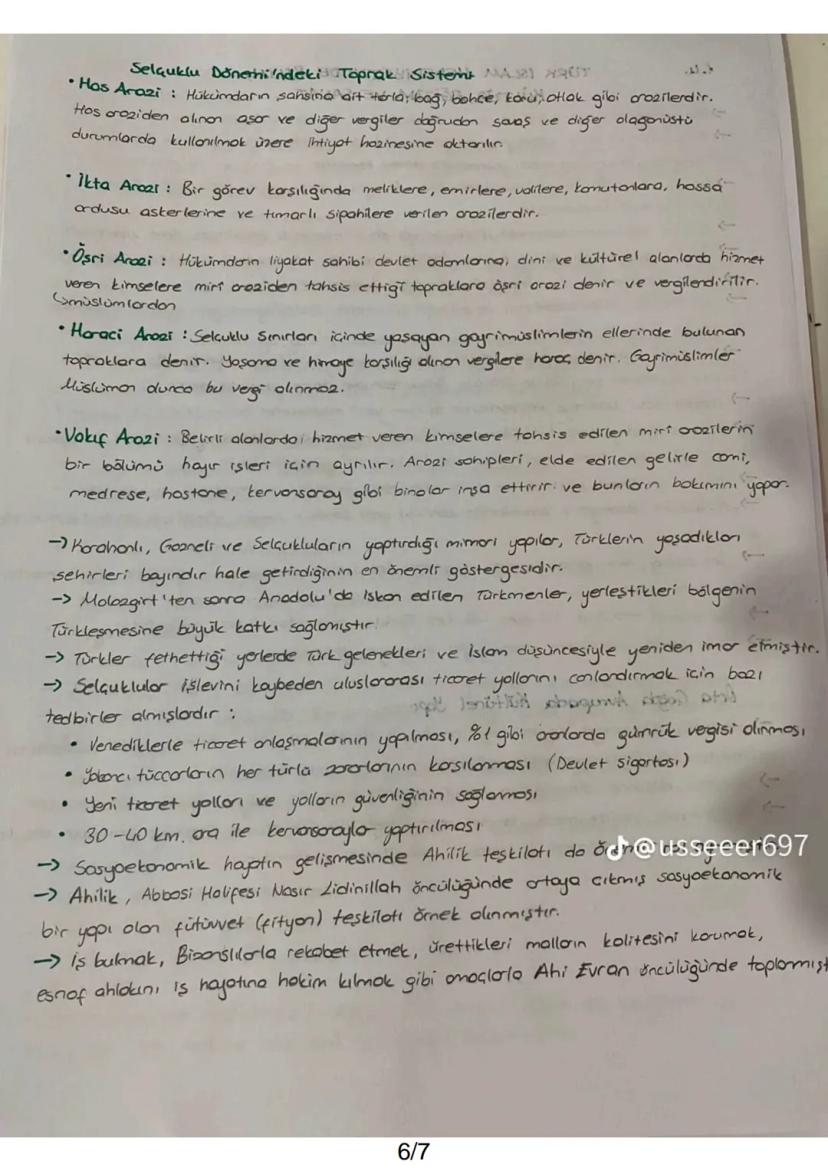 Selçuklu Dönemi'ndeki Toprak Sistemi
• Has Arazi : Hükümdarın şahsına ait tarla, bağ, bahçe, koru, otlak gibi arazilerdir.
Has araziden alınan aşar ve diğer vergiler doğrudan savaş ve diğer olağanüstü
durumlarda kullanılmak üzere ihtiyat hazinesine aktarılır.
• İkta Arazi : Bir görev karşılığında meliklere, emirlere, valilere, komutanlara, hassa
ordusu askerlerine ve tımarlı sipahilere verilen arazilerdir.
• Öşri Arazi : Hükümdarın liyakat sahibi devlet adamlarına, dini ve kültürel alanlarda hizmet
veren kimselere miri araziden tahsis ettiği topraklara öşri arazi denir ve vergilendirilir.
müslümlardan
• Haraci Arazi : Selçuklu sınırları içinde yaşayan gayrimüslimlerin ellerinde bulunan
topraklara denir. Yaşama ve himaye karşılığı alınan vergilere haraç denir. Gayrimüslimler
Müslüman olunca bu vergi alınmaz.
• Vakıf Arazi : Belirli alanlarda hizmet veren kimselere tahsis edilen miri arazilerin
bir bölümü hayır işleri için ayrılır. Arazi sahipleri, elde edilen gelirle cami,
medrese, hastane, kervansaray gibi binalar inşa ettirir ve bunların bakımını yapar.
→ Karahanlı, Gazneli ve Selçukluların yaptırdığı mimari yapılar, Türklerin yaşadıkları
şehirleri bayındır hale getirdiğinin en önemli göstergesidir.
→ Malazgirt'ten sonra Anadolu'da iskan edilen Türkmenler, yerleştikleri bölgenin
Türkleşmesine büyük katkı sağlamıştır
→ Türkler fethettiği yerlerde Türk gelenekleri ve İslam düşüncesiyle yeniden imar etmiştir.
→ Selçuklular işlevini kaybeden uluslararası ticaret yollarını canlandırmak için bazı
tedbirler almışlardır :
• Venediklerle ticaret anlaşmalarının yapılması, %1 gibi oranlarda gümrük vergisi alınması
• Yabancı tüccarların her türlü zararlarının karşılanması (Devlet sigortası)
• Yeni ticaret yolları ve yolların güvenliğinin sağlaması
• 30-40 km. ara ile kervasaraylar yaptırılması
→ Sosyoekonomik haytın gelişmesinde Ahilik teşkilatı da
@usseeer697
→ Ahilik, Abbasi Halifesi Nasır Lidinillah öncülüğünde ortaya çıkmış sosyoekonomik
bir yapı olan fütüvvet (fityan) teşkilatı örnek alınmıştır.
→ İş bulmak, Bizanslılarla rekabet etmek, ürettikleri malların kalitesini korumak,
esnaf ahlakını iş hayatına hakim kılmak gibi amaçlarla Ahi Evran öncülüğünde toplanmışt
6/7